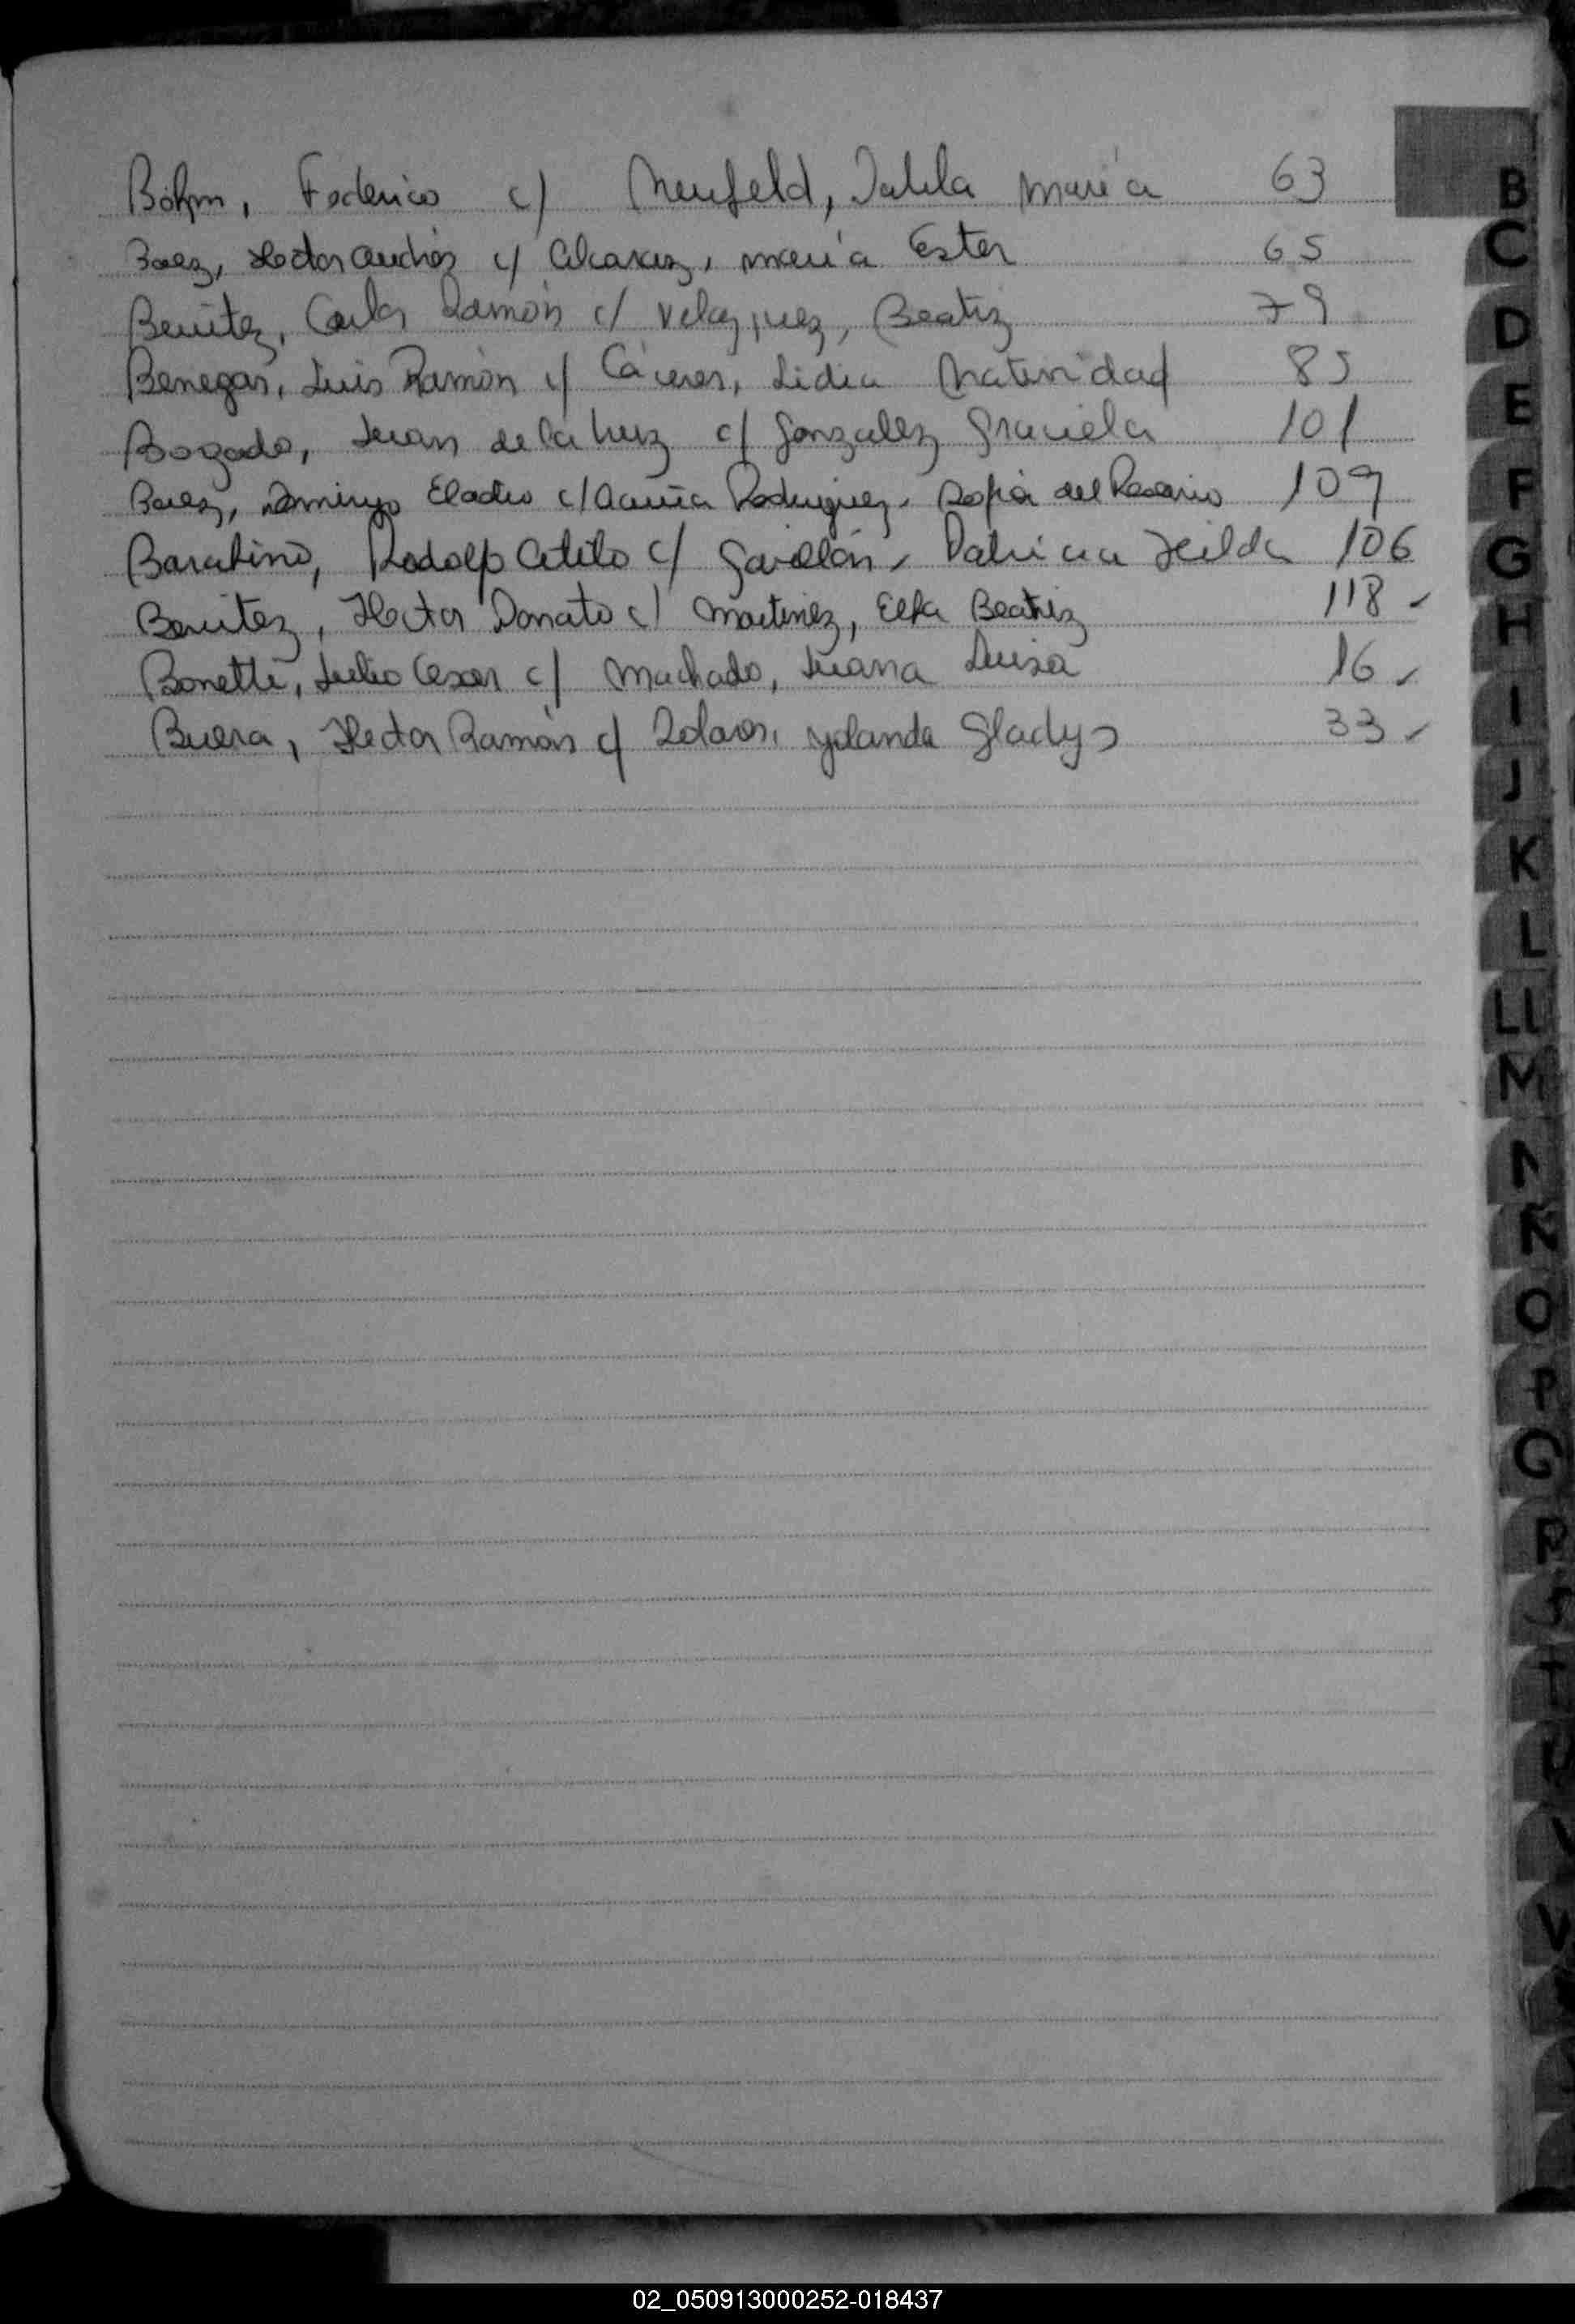 Böhm, Federico c/ Neufeld, María 63
Baez, Hector Andrés c/ Alcaraz, María Ester 65
Benítez, Carlos Ramón c/ Velazquez, Beatriz 79
Benegas, Luis Ramón c/ Cáceres, Lidia Natividad 85
Bogado, Juan de la Luz c/ Gonzalez Graciela 101
Baez, Domingo Eladio c/ Acuña Rodriguez, Sofía del Rosario 109
Rodolfo c/ Patricia Hilda 106
Benitez, Hector Donato c/ Martinez, Elba Beatriz 118
Bonetti, Julio Cesar c/ Machado, Juana Luisa 16
Buera, Hector Ramón c/ Yolanda Gladys 33
B
C
D
E
F
G
H
I
J
K
L
LL
M
N
Ñ
O
P
Q
R
S
T
U
V
02_050913000252-018437